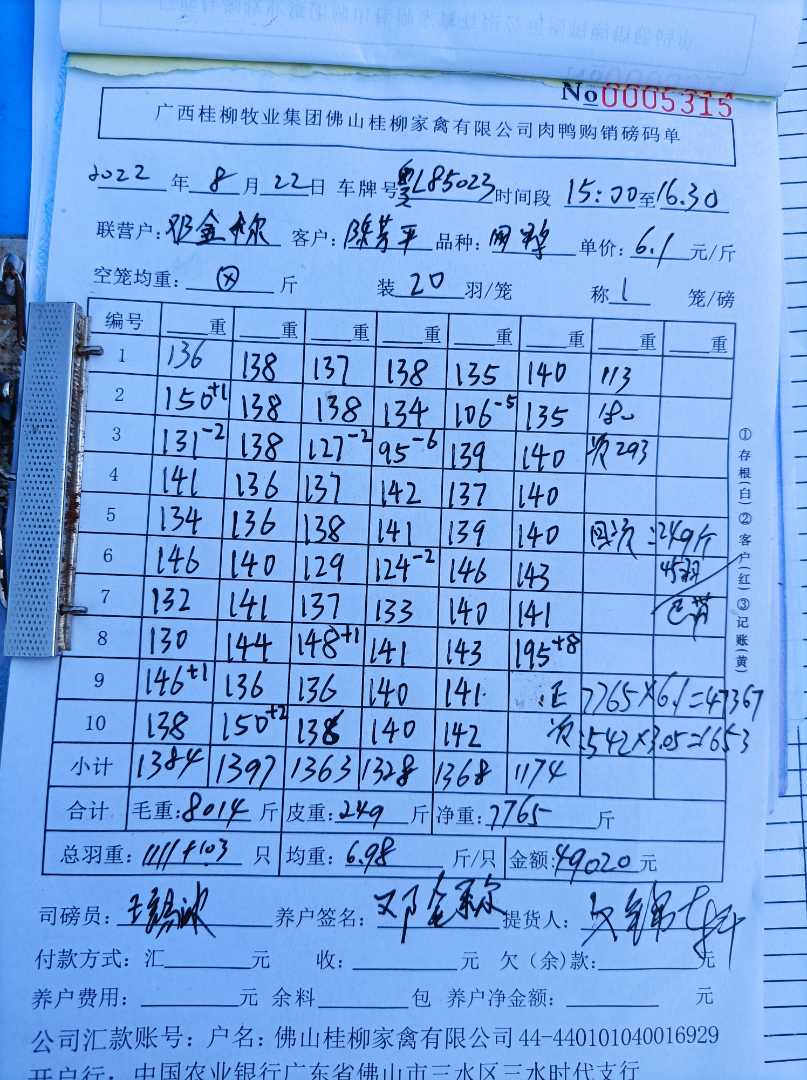 No0005315
广西桂柳牧业集团佛山桂柳家禽有限公司肉鸭购销磅码单
2022 年 8 月 22 日 车牌号 粤L85023 时间段 15:00 至 16.30
联营户: 邓金 客户: 陈芳平 品种: 单价: 6.1 元/斤
空笼均重: ⊗ 斤 装 20 羽/笼 称 1 笼/磅
编号 重 重 重 重 重 重 重 重
1 136 138 137 138 135 140 113
2 150+1 138 138 134 106-5 135 180
3 131-2 138 127-2 95-6 139 140 次293
4 141 136 137 142 137 140
5 134 136 138 141 139 140 次:249斤
6 146 140 129 124-2 146 143 45羽
7 132 141 137 133 140 141
8 130 144 148+1 141 143 195+8
9 146+1 136 136 140 141 正 7765×6.1=47367
10 138 150+2 138 140 142 次:542×3.05=1653
小计 1384 1397 1363 1328 1368 1174
合计 毛重: 8014 斤 皮重: 249 斤 净重: 7765 斤
总羽重: 1111+103 只 均重: 6.98 斤/只 金额: 49020 元
①存根(白)②客户(红)③记账(黄)
司磅员: 养户签名: 邓金 提货人:
付款方式: 汇 元 收: 元 欠(余)款: 元
养户费用: 元 余料 包 养户净金额: 元
公司汇款账号: 户名: 佛山桂柳家禽有限公司 44-440101040016929
开户行: 中国农业银行广东省佛山市三水区三水时代支行